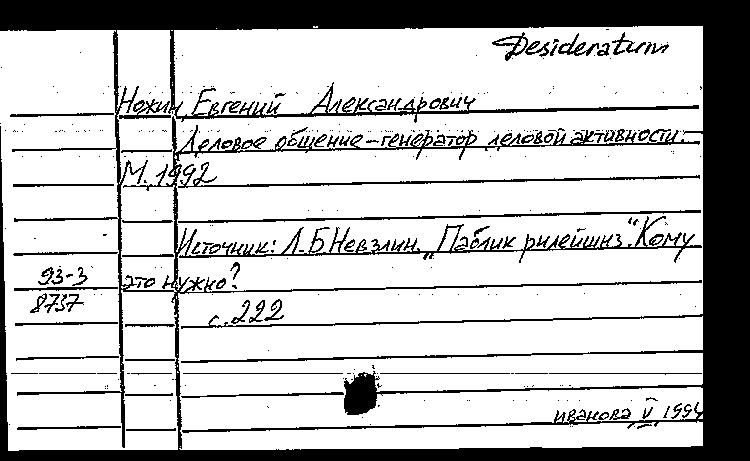 Desideratum
Ножин, Евгений Александрович
Деловое общение – генератор деловой активности.
М., 1992
Источник: Л.Б Невзлин. „Паблик рилейшнз". Кому
93-3 это нужно?
8737
с. 222
иванова, V, 1994